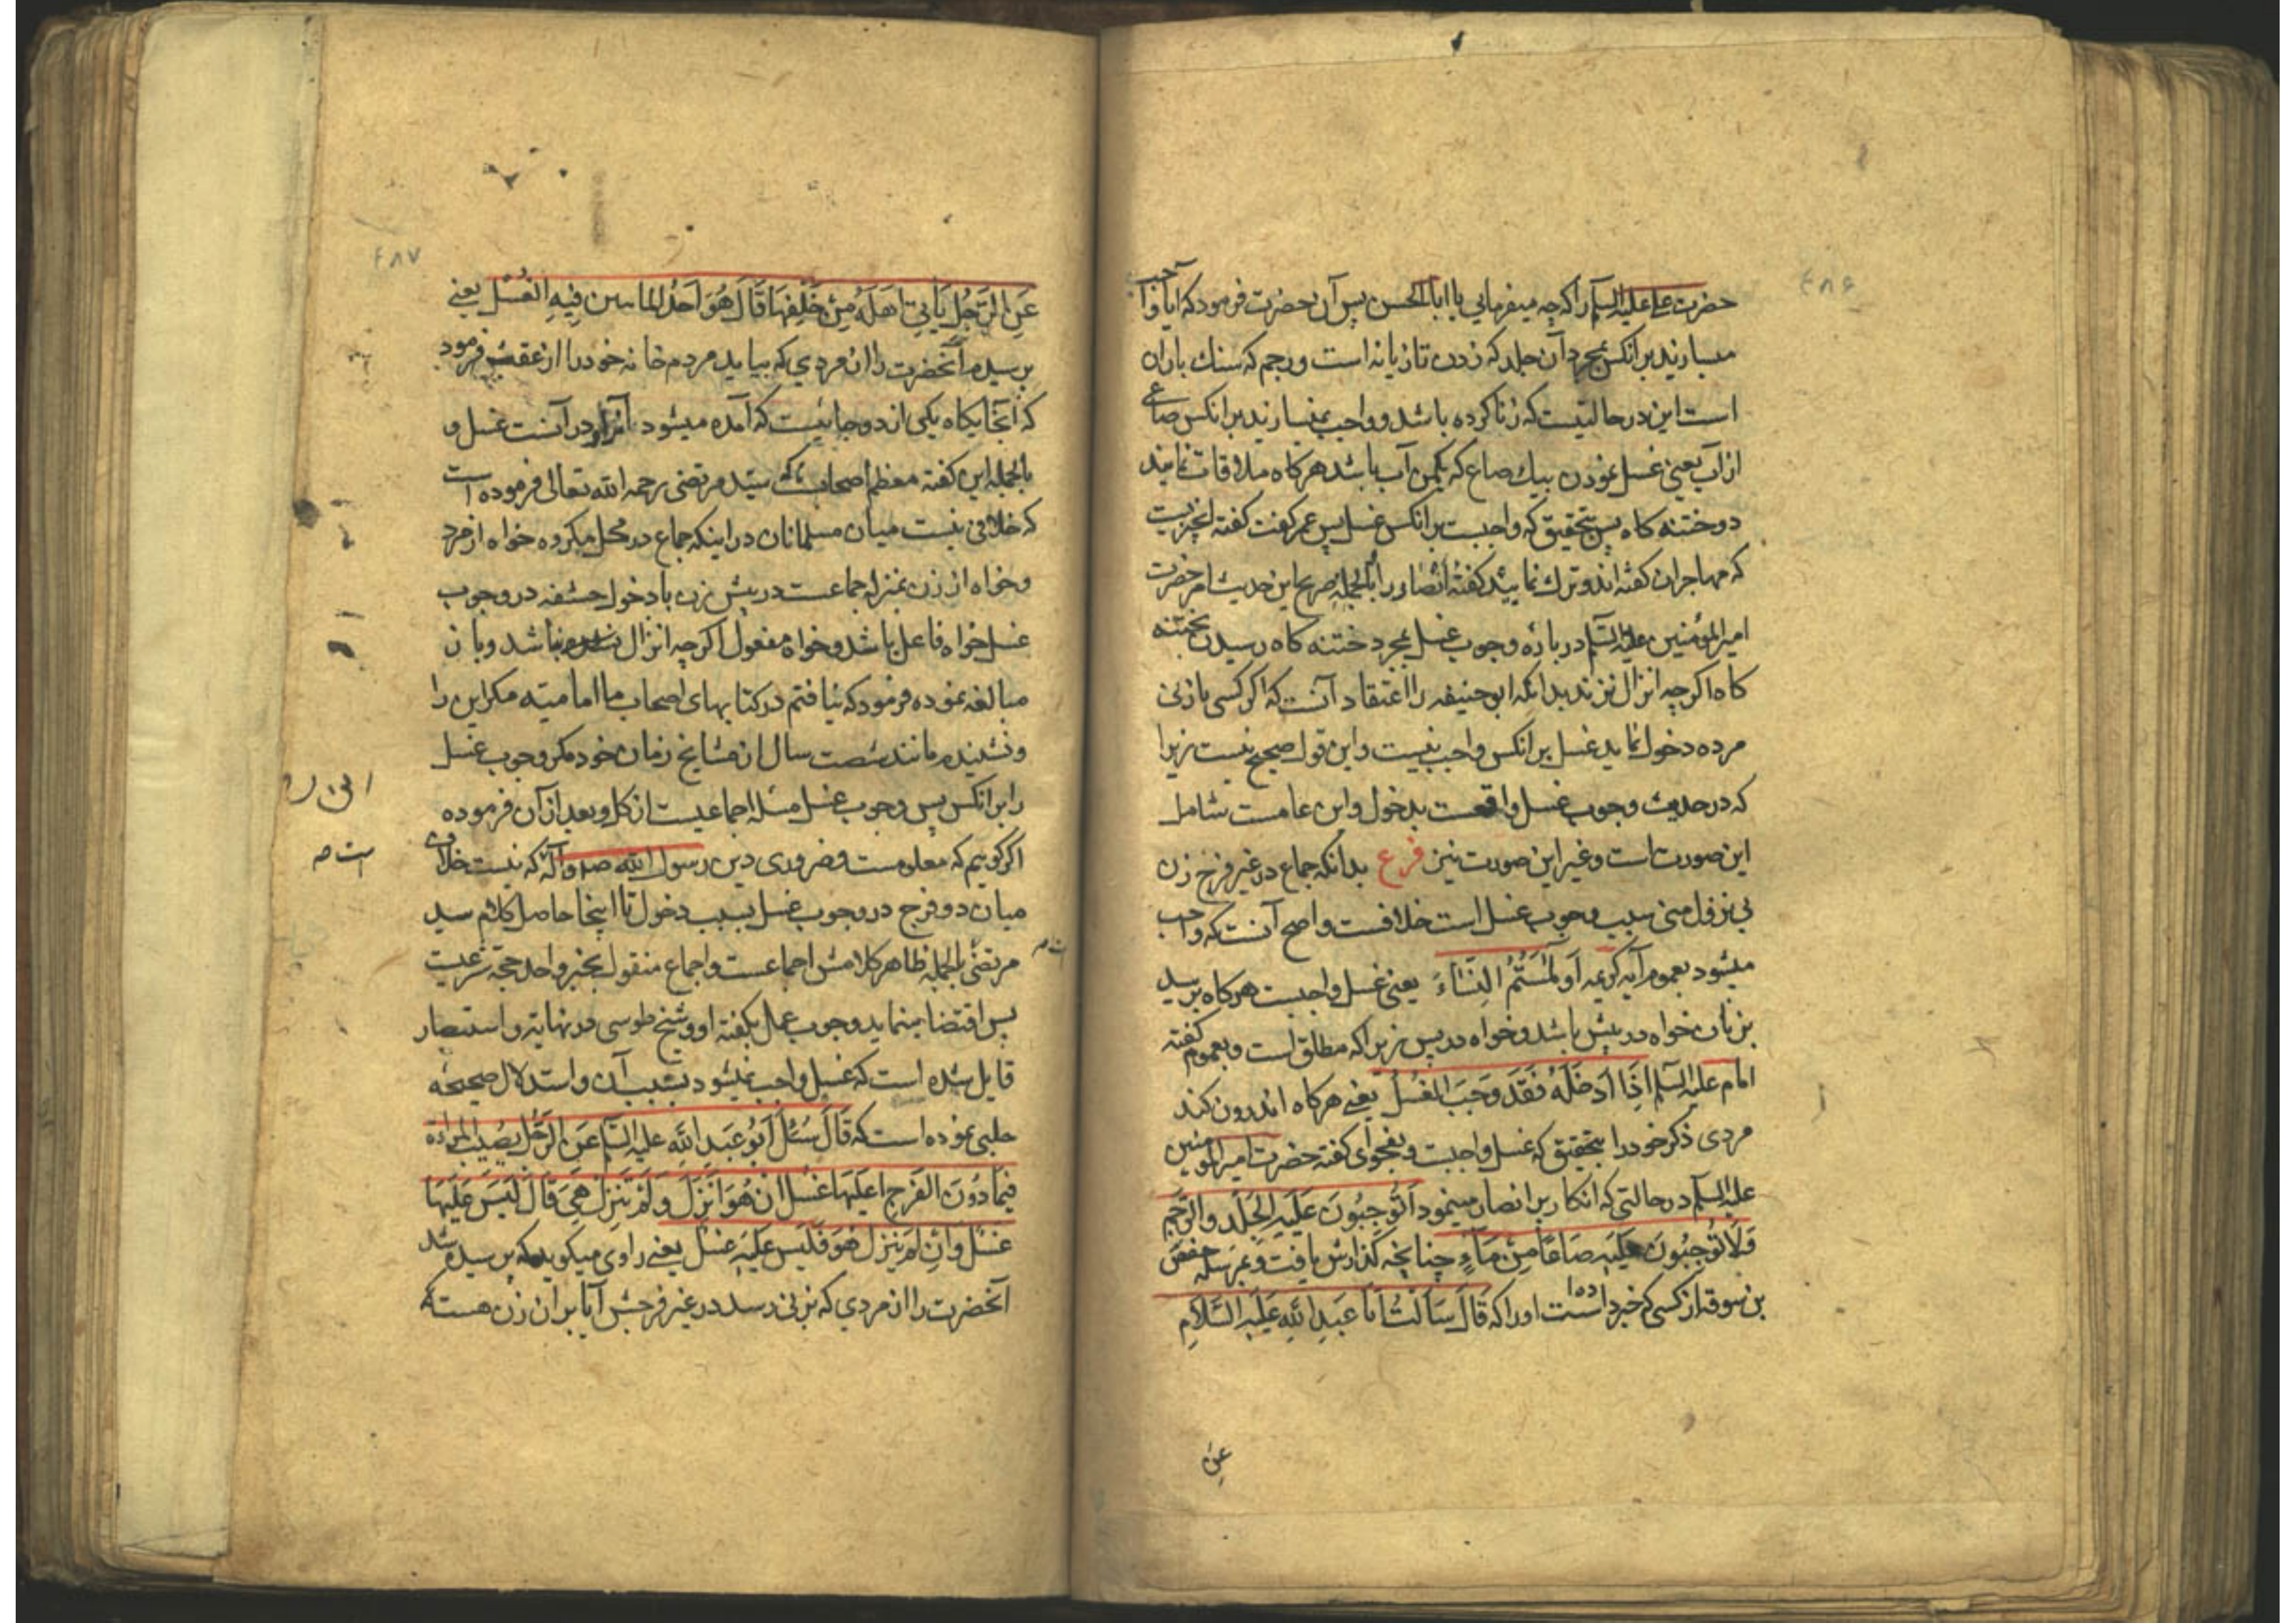 ۴۸۶
حضرت علی علیه السلم را که چه میفرمایی یا ابا الحسن پس آن حضرت فرمود که ایا واجب
میسازند برانکس بمجرد آن جلد که زدن تازیانه است و رجم که سنك باران
است این در حالتیست که زنا کرده باشد و واجب نمیسازند برانکس صاعی
از آب یعنی غسل نمودن بیك صاع که یکمن آب باشد هرکاه ملاقات نمایند
دو ختنه کاه پس بتحقیق که واجبست برانکس غسل پس عمر کفت کفته انچیزیست
که مهاجران کفته اند و ترك نمایید کفتهٔ انصار را بالجمله صریح این حدیث امر حضرت
امیر المؤمنین علیه السلم در باره وجوب غسل بمجرد ختنه کاه رسیدن بختنه
کاه اکرچه انزال نزند بدانکه ابو حنیفه را اعتقاد آنست که اکر کسی با زنی
مرده دخول نماید غسل برانکس واجب نیست و این قول صحیح نیست زیرا
که در حدیث وجوب غسل واقعست بدخول و این عامست شامل
این صورت است و غیر این صورت نیز فرع بدانکه جماع در غیر فرج زن
بی نزول منی سبب وجوب غسل است خلافست و اصح آنست که واجب
میشود بعموم آیه کریمه اَو لٰمَستُمُ النِّساءَ یعنی غسل واجبست هرکاه برسید
بزنان خواه در پیش باشد و خواه در پس زیرا که مطلق است و بعموم کفته
امام علیه السلم اِذا اَدخَلَهُ فَقَد وَجَبَ الغُسلُ یعنی هرکاه اندرون کند
مردی ذکر خود را بتحقیق که غسل واجبست و بفحوای کفته حضرت امیر المومنین
علیه السلم در حالتی که انکار بر انصار مینمود اَتُوجِبُونَ عَلَیهِ الجَلدَ والرَّجمَ
وَلاتُوجِبُونَ عَلَیهِ صَاعًا مِن مَاءٍ چنانچه کذارش یافت و بمرسله حفص
بن سوقه از کسی که خبر داده است او را که قالَ سَاَلتُ اَبا عَبدِ اللهِ عَلَیهِ السَّلامِ
عن
۴۸۷
عَنِ الرَّجُلِ یَأتِی اَهلَهُ مِن خَلفِهَا قَالَ هُوَ اَحَدُ الماتیین فِیهِ الغُسل یعنی
پرسیدم آنحضرت را از مردی که بیاید مردم خانه خود را از عقبش فرمود
که آنجایکاه یکی از دو جائیست که آمده میشود در آنست غسل و
بالجمله این کفته معظم اصحاب سیّد مرتضی رحمه الله تعالی فرموده است
که خلافی نیست میان مسلمانان در اینکه جماع در محل مکروه خواه از مرد
و خواه از زن بمنزله جماعست در پیش زن با دخول حشفه در وجوب
غسل خواه فاعل باشد و خواه مفعول اکرچه انزال نشده باشد و بان
مبالغه نموده فرمود که نیافتم در کتابهای اصحاب ما امامیّه مکر این را
و نشنیدم مانند شصت سال از مشایخ زمان خود مکر وجوب غسل
را بر انکس پس وجوب غسل مسئله اجماعیست از کل و بعد از آن فرموده
اکر کویم که معلومست و ضروری دین رسول الله ص و آله که نیست خلافی
میان دو فرج در وجوب غسل بسبب دخول تا اینجا حاصل کلام سید
مرتضی بالجمله ظاهر کلامش اجماعست و اجماع منقول بخبر واحد حجة شرعیست
پس اقتضا مینماید وجوب عمل بکفته او و شیخ طوسی در نهایه و استبصار
قایل شده است که غسل واجب نمیشود بسبب آن و استدلال صحیحه
حلبی نموده است که قَالَ سُئِلَ اَبُو عَبدِ اللهِ علیه السلم عَنِ الرَّجُلِ یُصیبُ المراة
فِیمَا دُونَ الفَرجِ اعَلَیهَا غُسل ان هُوَ اَنزَلَ وَ لَم تَنزِل هِیَ قَالَ لَیسَ عَلَیهَا
غُسل وَ اِن لَم یَنزِل هُوَ فَلَیسَ عَلَیهِ غُسل یعنی راوی میکوید که پرسیده شد
آنحضرت را از مردی که بزنی رسد در غیر فرجش آیا بران زن هست که